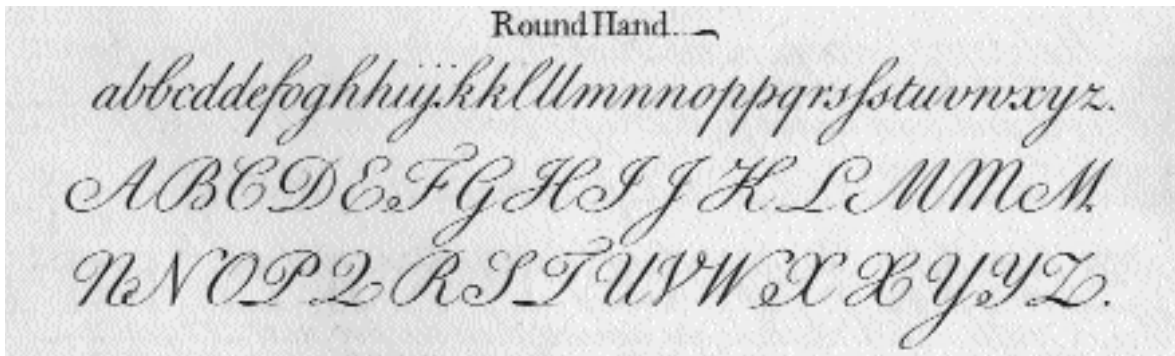 Round Hand
abbcddefoghhiijkkllllmnnnopppqrsſstuvwxyz.
ABCDEFGHIJKLMMM.
NNOPQRSTUVWXXYYZ.